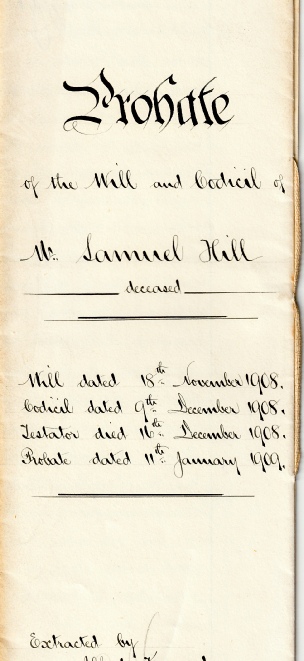 Probate
of the Will and Codicil of
Mr. Samuel Hill
deceased
Will dated 18th November 1908.
Codicil dated 9th December 1908.
Testator died 16th December 1908.
Probate dated 11th January 1909.
Extracted by